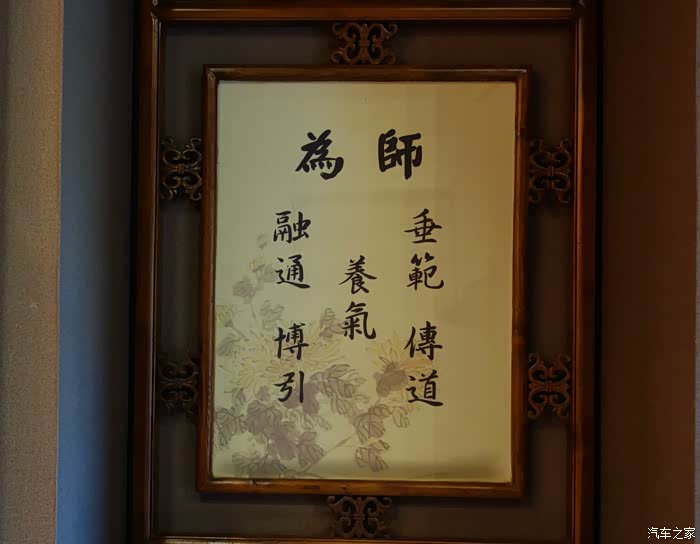 為師
垂範 傳道
養氣
融通 博引
汽车之家